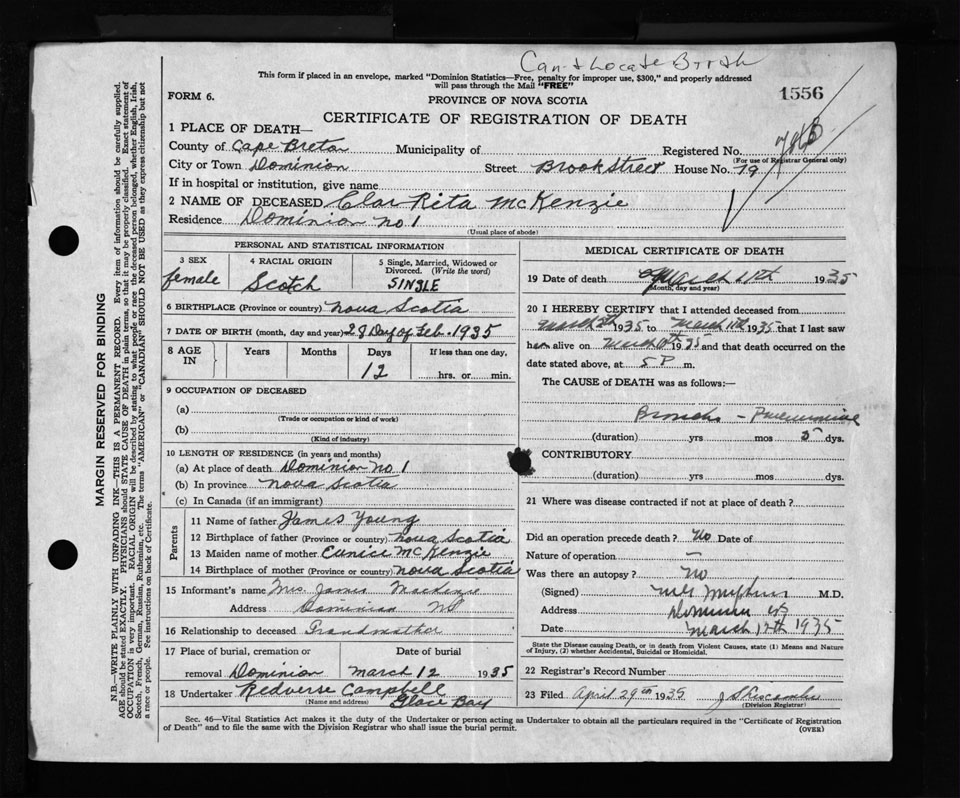 Can-t Locate Birth
This form if placed in an envelope, marked "Dominion Statistics—Free, penalty for improper use, $300," and properly addressed
will pass through the Mail "FREE"
1556
FORM 6.
PROVINCE OF NOVA SCOTIA
CERTIFICATE OF REGISTRATION OF DEATH
1 PLACE OF DEATH—
County of Cape Breton Municipality of Registered No.
(For use of Registrar General only)
City or Town Dominion Street Brook Street House No. 79
If in hospital or institution, give name
2 NAME OF DECEASED Clar Rita McKenzie
Residence Dominion No 1
(Usual place of abode)
PERSONAL AND STATISTICAL INFORMATION
3 SEX female
4 RACIAL ORIGIN Scotch
5 Single, Married, Widowed or Divorced. (Write the word) SINGLE
6 BIRTHPLACE (Province or country) Nova Scotia
7 DATE OF BIRTH (month, day and year) 28 Day of Feb. 1935
8 AGE IN Years Months Days 12 If less than one day, hrs. or min.
9 OCCUPATION OF DECEASED
(a)
(Trade or occupation or kind of work)
(b)
(Kind of industry)
10 LENGTH OF RESIDENCE (in years and months)
(a) At place of death Dominion No 1
(b) In province Nova Scotia
(c) In Canada (if an immigrant)
Parents
11 Name of father James Young
12 Birthplace of father (Province or country) Nova Scotia
13 Maiden name of mother Eunice McKenzie
14 Birthplace of mother (Province or country) Nova Scotia
15 Informant's name Mrs. James Mackenzie
Address Dominion
16 Relationship to deceased Grandmother
17 Place of burial, cremation or removal Dominion Date of burial March 12 1935
18 Undertaker Redverse Campbell
(Name and address) Glace Bay
MEDICAL CERTIFICATE OF DEATH
19 Date of death March 11th 1935
(Month, day and year)
20 I HEREBY CERTIFY that I attended deceased from
March 1935 to March 11th 1935 that I last saw
her alive on March 1935 and that death occurred on the
date stated above, at 5 P m.
The CAUSE of DEATH was as follows:—
Broncho - Pneumonia
(duration) yrs mos dys.
CONTRIBUTORY
(duration) yrs mos dys.
21 Where was disease contracted if not at place of death?
Did an operation precede death? No Date of
Nature of operation —
Was there an autopsy? No
(Signed) M.D.
Address Dominion
Date March 12th 1935
State the Disease causing Death, or in death from Violent Causes, state (1) Means and Nature
of Injury, (2) whether Accidental, Suicidal or Homicidal.
22 Registrar's Record Number
23 Filed April 29th 1935
(Division Registrar)
Sec. 46—Vital Statistics Act makes it the duty of the Undertaker or person acting as Undertaker to obtain all the particulars required in the "Certificate of Registration
of Death" and to file the same with the Division Registrar who shall issue the burial permit.
(OVER)
MARGIN RESERVED FOR BINDING
N.B.—WRITE PLAINLY WITH UNFADING INK—THIS IS A PERMANENT RECORD. Every item of information should be carefully supplied.
AGE should be stated EXACTLY. PHYSICIANS should STATE CAUSE OF DEATH in plain terms, so that it may be properly classified. Exact statement of
OCCUPATION is very important. RACIAL ORIGIN will be described by stating to what people or race the deceased person belonged, whether English, Irish,
Scotch, French, German, Russian, Ruthenian, etc. The terms "AMERICAN" or "CANADIAN" SHOULD NOT BE USED as they express citizenship but not
a race or people. See instructions on back of Certificate.